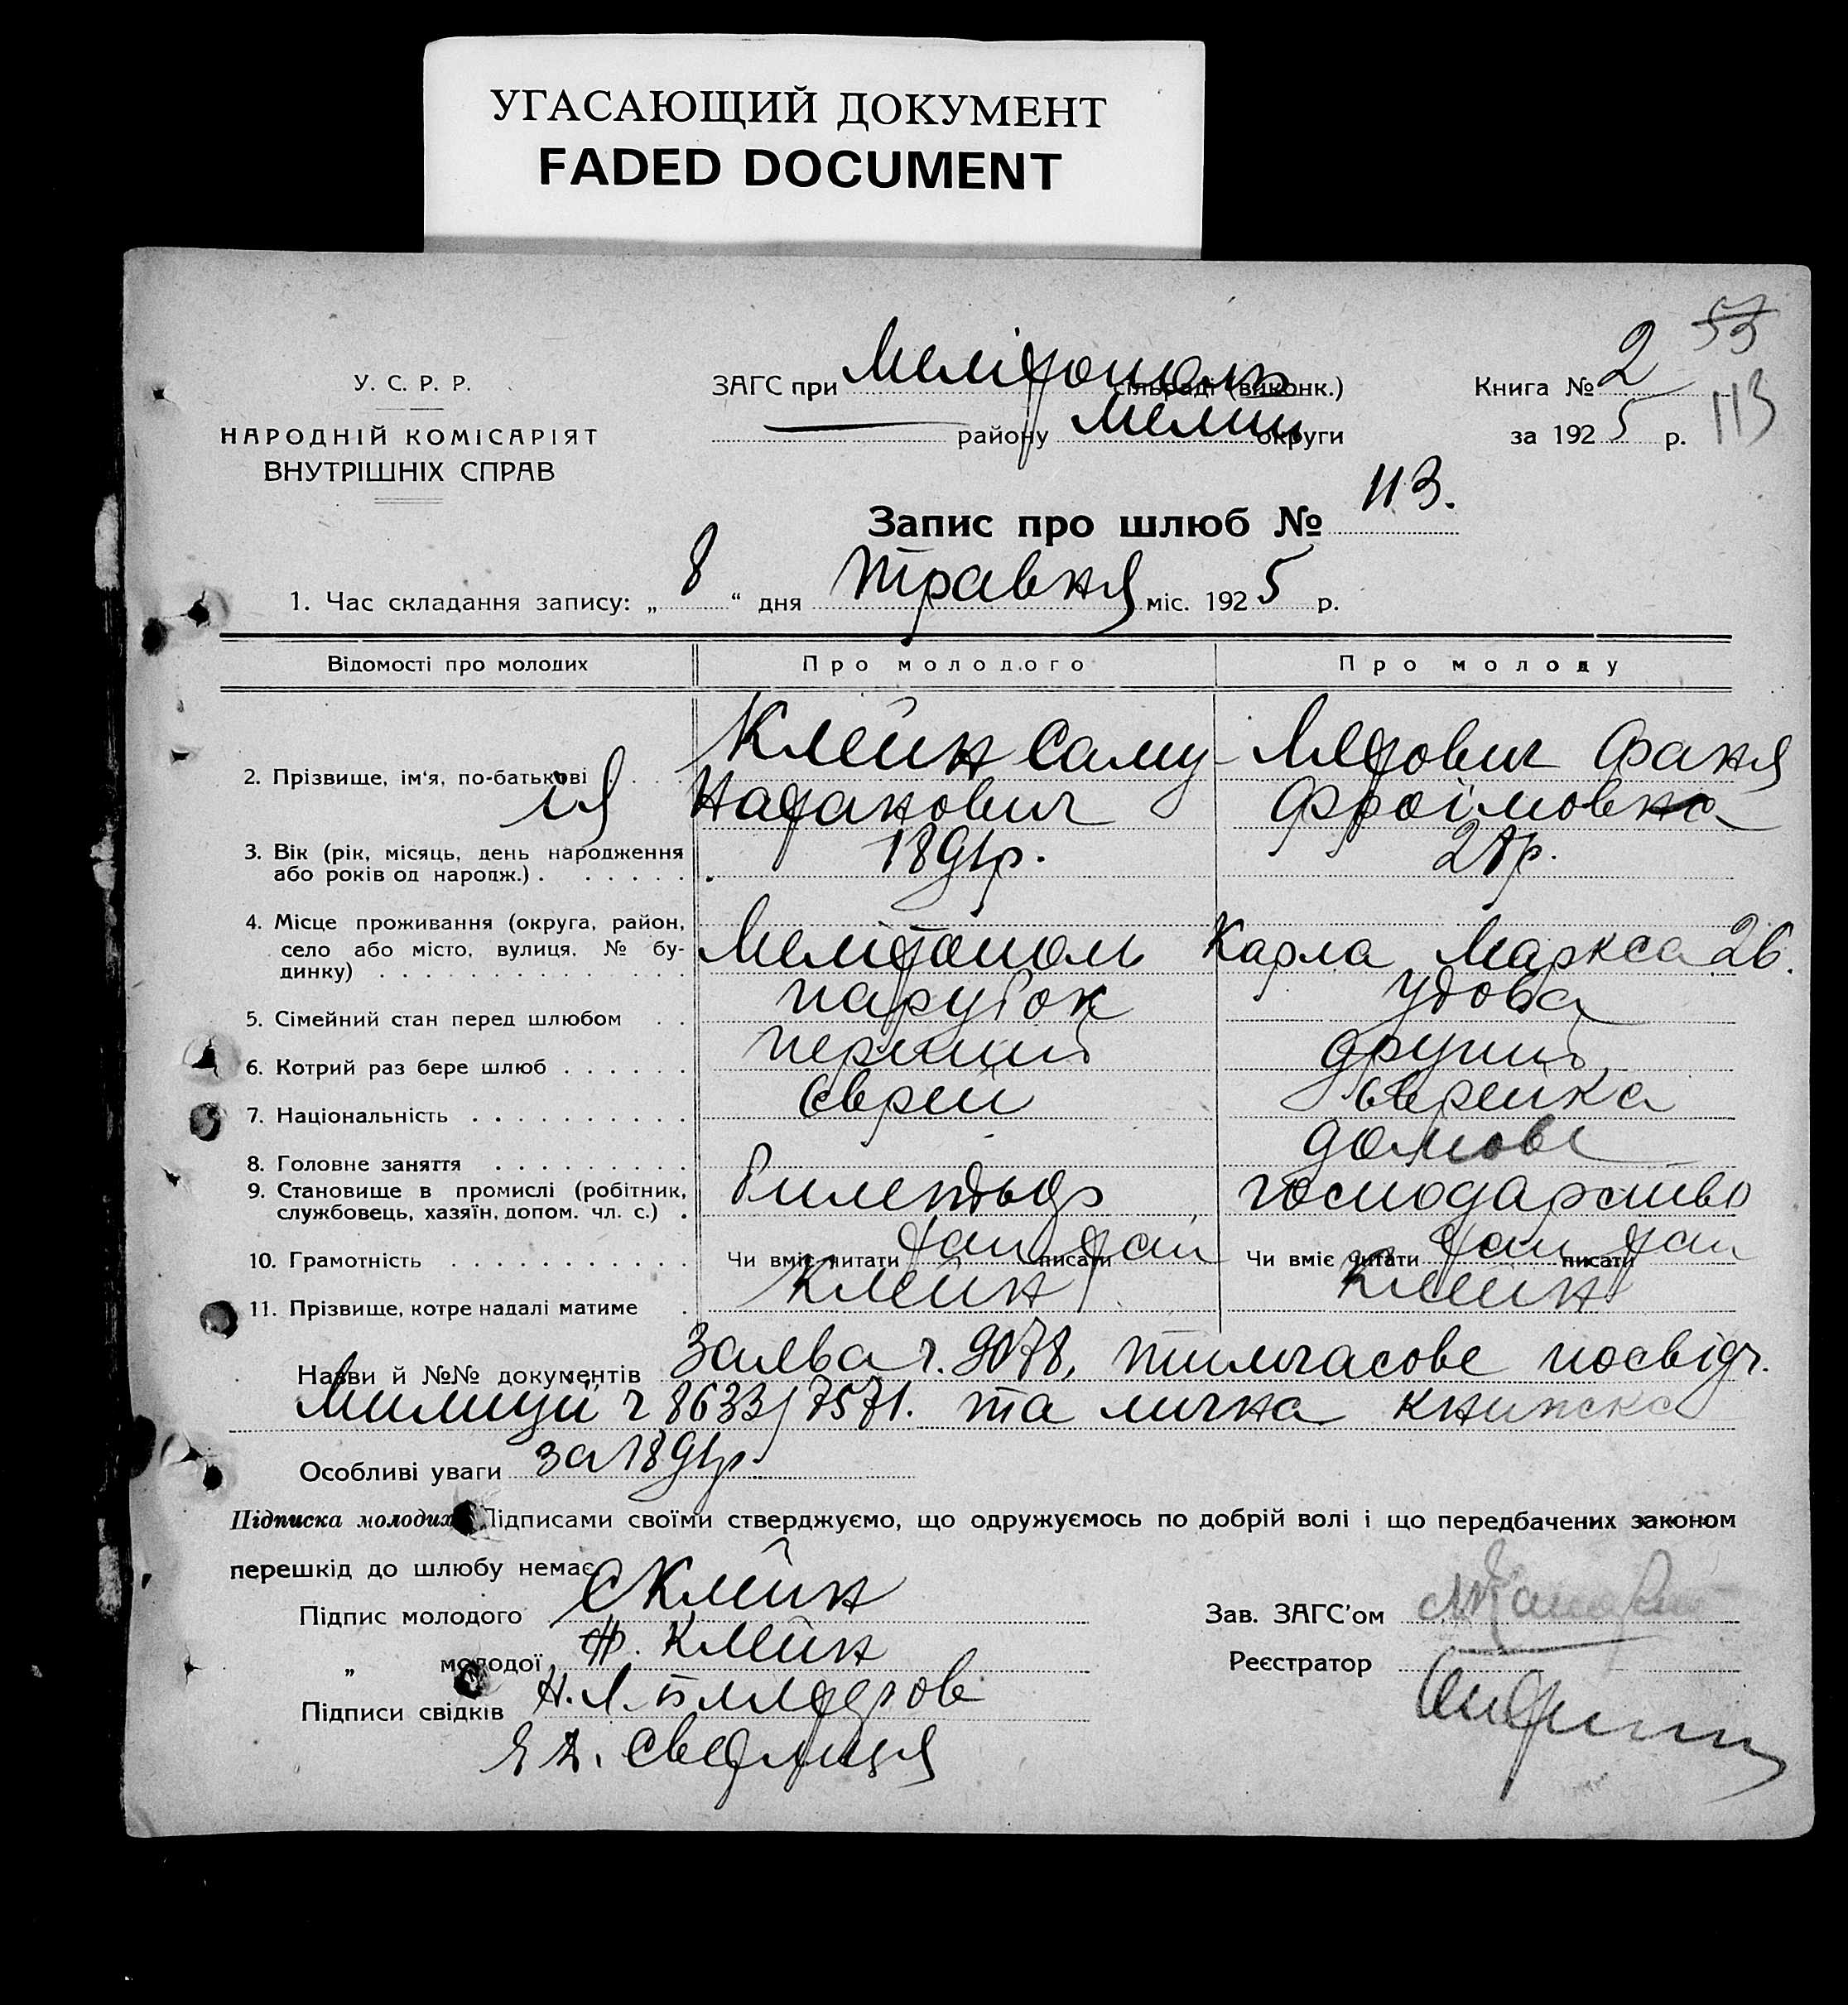 УГАСАЮЩИЙ ДОКУМЕНТ
FADED DOCUMENT
53
У. С. Р. Р.
НАРОДНІЙ КОМІСАРІЯТ
ВНУТРІШНІХ СПРАВ
ЗАГС при Мелітополь сільраді (виконк.)
району Мелит округи
Книга № 2
за 1925 р.
113
Запис про шлюб № 113.
1. Час складання запису: „ 8 “ дня травня міс. 1925 р.
Відомості про молодих
Про молодого
Про молоду
2. Прізвище, ім‘я, по-батькові
Клейн Саму-
іл Натанович
Фаня
Фроімовна
3. Вік (рік, місяць, день народження
або років од народж.)
1891р.
28р.
4. Місце проживання (округа, район,
село або місто, вулиця, № бу-
динку)
Мелітополь Карла Маркса 26.
5. Сімейний стан перед шлюбом
парубок
удова
6. Котрий раз бере шлюб
перший
другий
7. Національність
єврей
єврейка
8. Головне заняття
домове
9. Становище в промислі (робітник,
службовець, хазяїн, допом. чл. с.)
господарство
10. Грамотність
Чи вміє читати так писати так
Чи вміє читати так писати так
11. Прізвище, котре надалі матиме
Клейн
Клейн
Назви й №№ документів Заява ч. 9078, тимчасове посвідч.
Милиції ч 8633/7571. та лична книжка
Особливі уваги за 1891р.
Підписка молодих Підписами своїми стверджуємо, що одружуємось по добрій волі і що передбачених законом
перешкід до шлюбу немає.
Підпис молодого С Клейн
„ молодої Ф. Клейн
Підписи свідків
Зав. ЗАГС’ом
Реєстратор